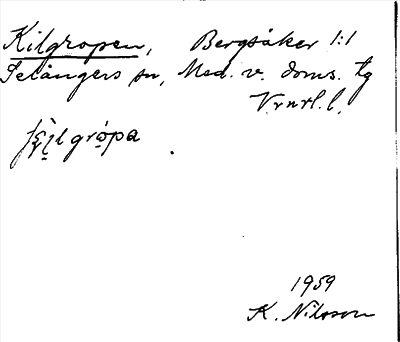 Kilgropen, Bergsåker 1:1
Selångers sn, Med. v. doms. tg
Vrnrl. l.
1959
K. Nilsson